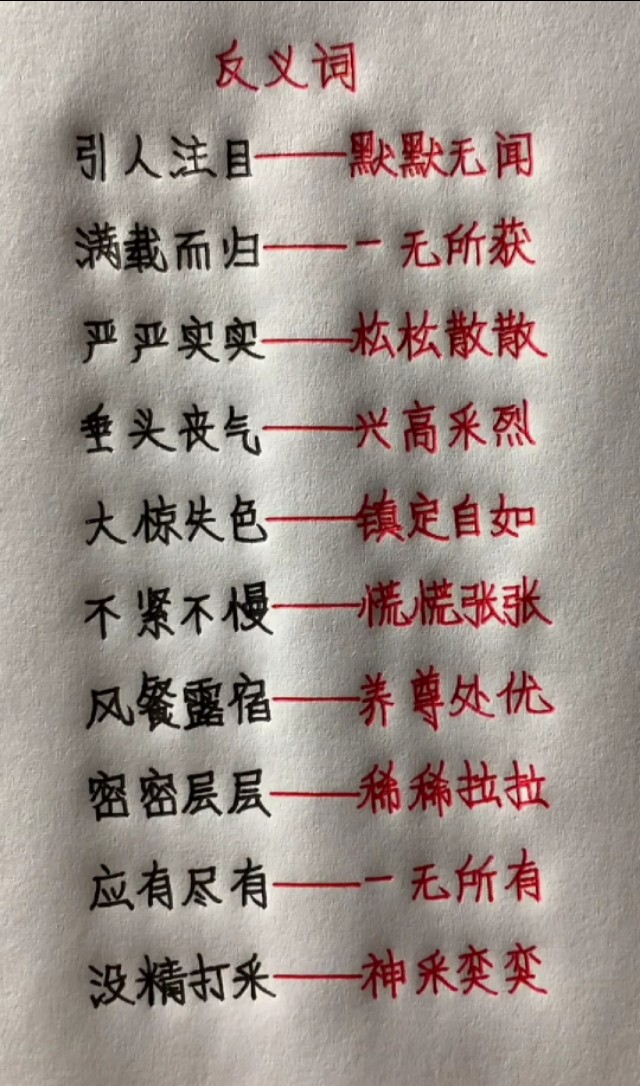 反义词
引人注目——默默无闻
满载而归——一无所获
严严实实——松松散散
垂头丧气——兴高采烈
大惊失色——镇定自如
不紧不慢——慌慌张张
风餐露宿——养尊处优
密密层层——稀稀拉拉
应有尽有——一无所有
没精打采——神采奕奕